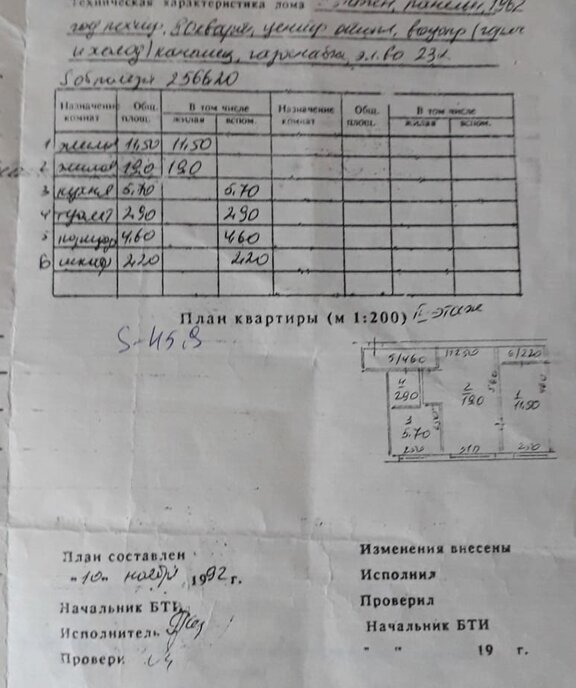 Техническая характеристика дома 5 этажн, панельн, 1962
год
и холод) канализ, эл.во 23к.
S общ полезн 2566.20
Назначение комнат Общ. площ. В том числе Назначение комнат Общ. площ. В том числе
жилая вспом. жилая вспом.
1 жилая 11,50 11,50
2 жилая 19,0 19,0
3 кухня 5.70 5.70
4 туалет 2.90 2.90
5 коридор 4.60 4.60
6 шкаф 2.20 2.20
План квартиры (м 1:200) II-этаж
S-45,9
5/460 6/220
4 290 2 19,0 1 11,50
3 5.70
План составлен
"10" ноября 1992 г.
Начальник БТИ
Исполнитель
Провери
Изменения внесены
Исполнил
Проверил
Начальник БТИ
" " 19 г.